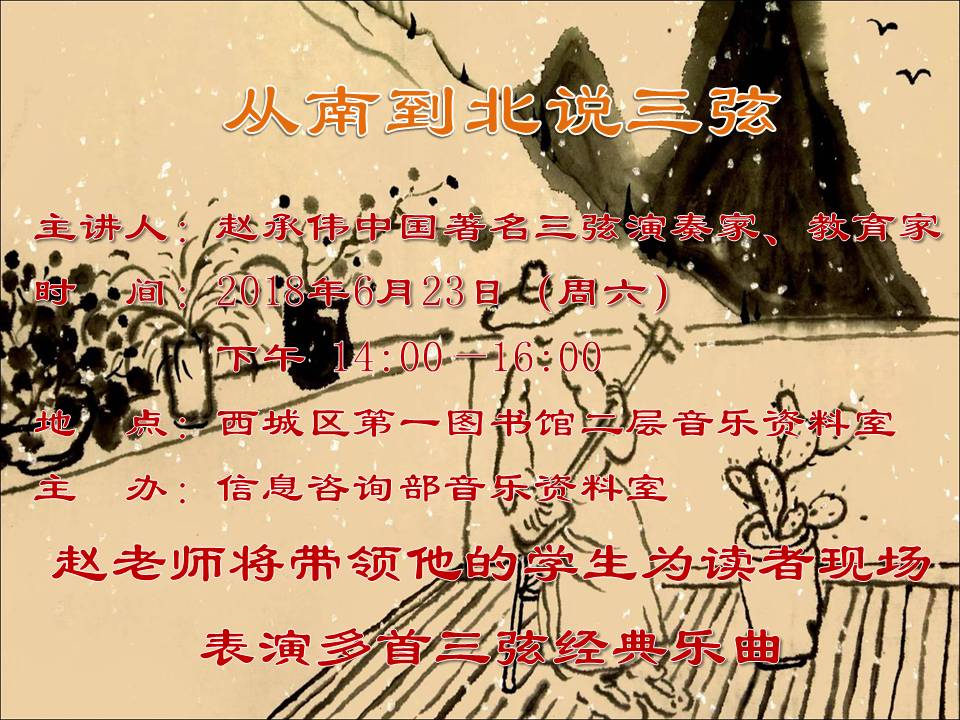 从南到北说三弦
主讲人：赵承伟中国著名三弦演奏家、教育家
时　间：2018年6月23日（周六）
下午 14:00－16:00
地　点：西城区第一图书馆二层音乐资料室
主　办：信息咨询部音乐资料室
赵老师将带领他的学生为读者现场
表演多首三弦经典乐曲